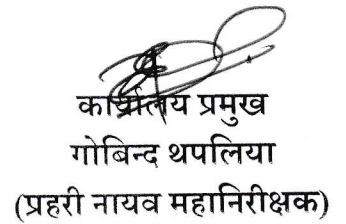 कार्यालय प्रमुख
गोबिन्द थपलिया
(प्रहरी नायव महानिरीक्षक)